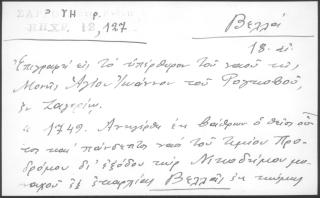 ΗΠΧΡ. 12, 127
Βελλάς
18. αι
Ἐπιγραφὴ εἰς τὸ ὑπέρθυρον τοῦ ναοῦ τῆς
Μονῆς Ἁγίου Ἰωάννου τοῦ Ρογκοβοῦ,
ἐν Ζαγορίῳ.
1749. Ἀνηγέρθη ἐκ βάθρων ὁ θεῖος οὗ-
τος καὶ πάνσεπτος ναὸς τοῦ Τιμίου Προ-
δρόμου δι' ἐξόδου κὺρ Νικοδήμου μο-
ναχοῦ ἐξ ἐπαρχίας Βελλᾶς ἐκ κώμης